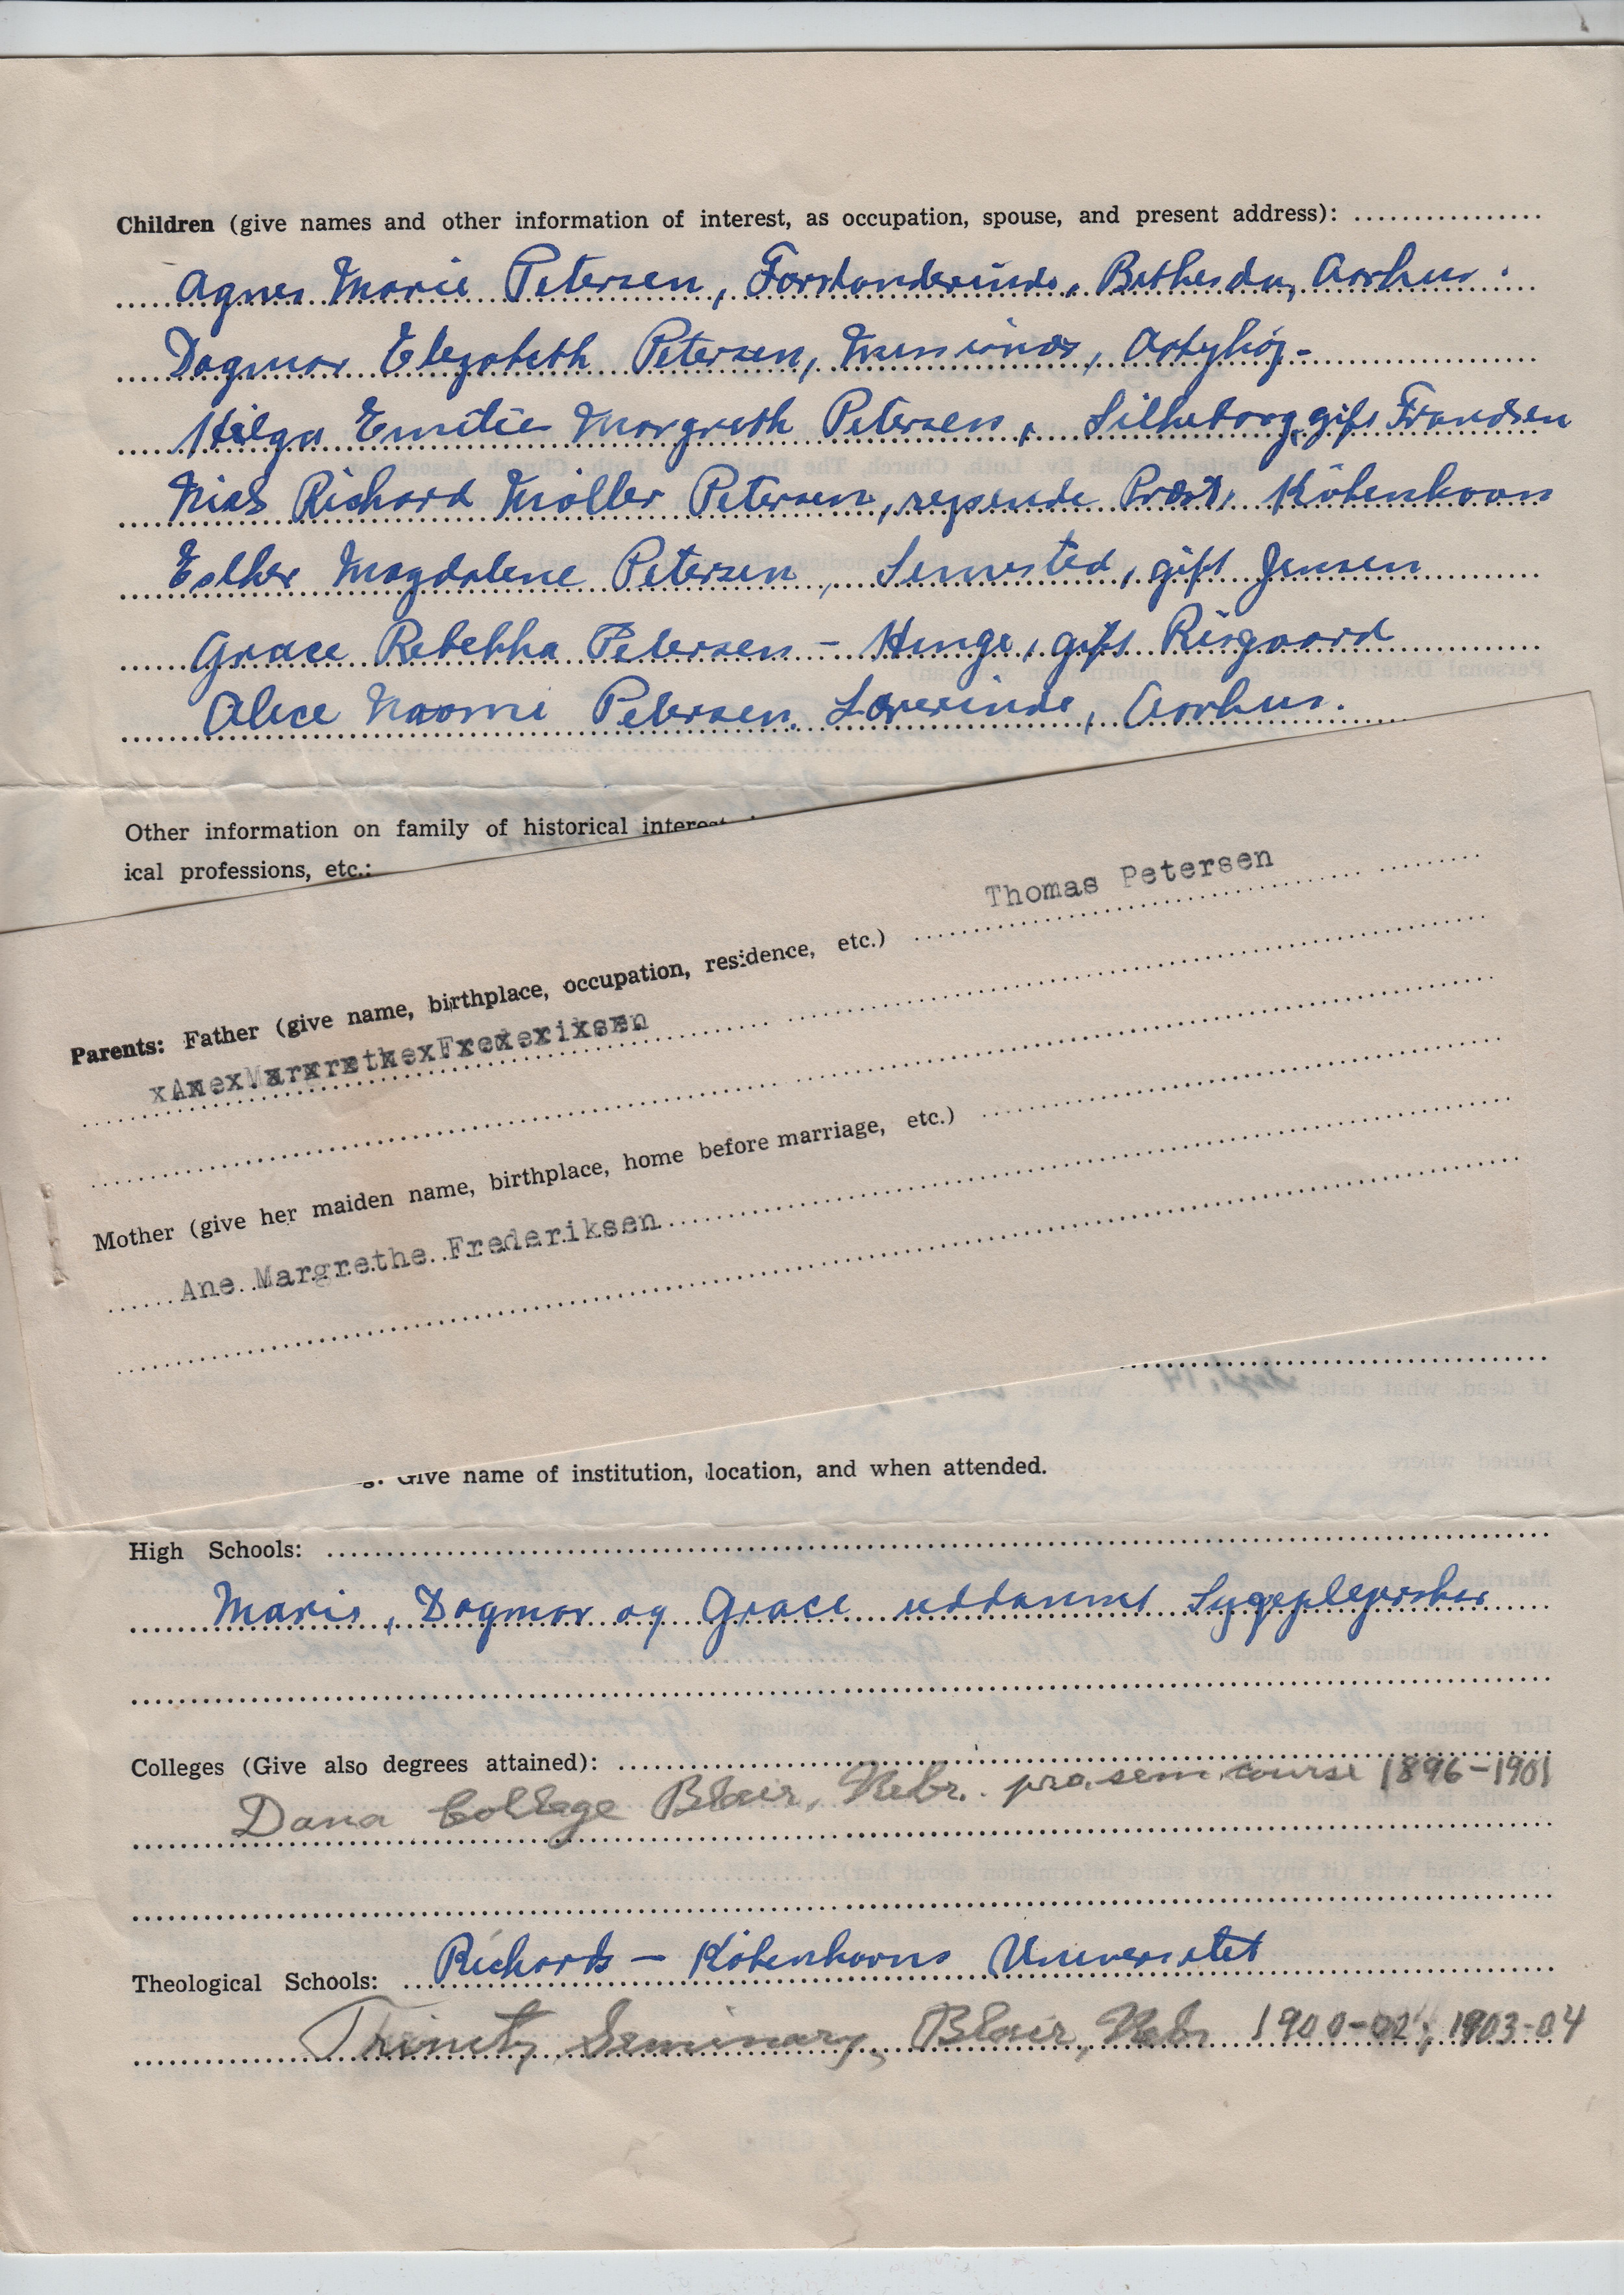 Children (give names and other information of interest, as occupation, spouse, and present address):
Agnes Marie Petersen, Forstanderinde, Bethesda, Aarhus.
Dagmar Elezabeth Petersen, Aabyhøj-
Helga Emilie Margreth Petersen, Silkeborg, gift Frandsen
Niels Richard Møller Petersen, rejsende Præst, København
Esther Magdalene Petersen, Simested, gift Jensen
Grace Rebekka Petersen - Hinge, gift Risgaard
Alice Naomi Petersen. Lærerinde, Aarhus.
Other information on family of historical interest
ical professions, etc.:
Thomas Petersen
Parents: Father (give name, birthplace, occupation, residence, etc.)
xAxexMarxrethexFrexerixsen
Mother (give her maiden name, birthplace, home before marriage, etc.)
Ane Margrethe Frederiksen
Give name of institution, location, and when attended.
High Schools:
Marie, Dagmar og Grace uddannet Sygeplejersker
Colleges (Give also degrees attained):
Dana College Blair, Nebr. pro.sem.course 1896-1901
Theological Schools: Richards - Københavns Universitet
Trinity Seminary, Blair, Nebr 1900-02; 1903-04